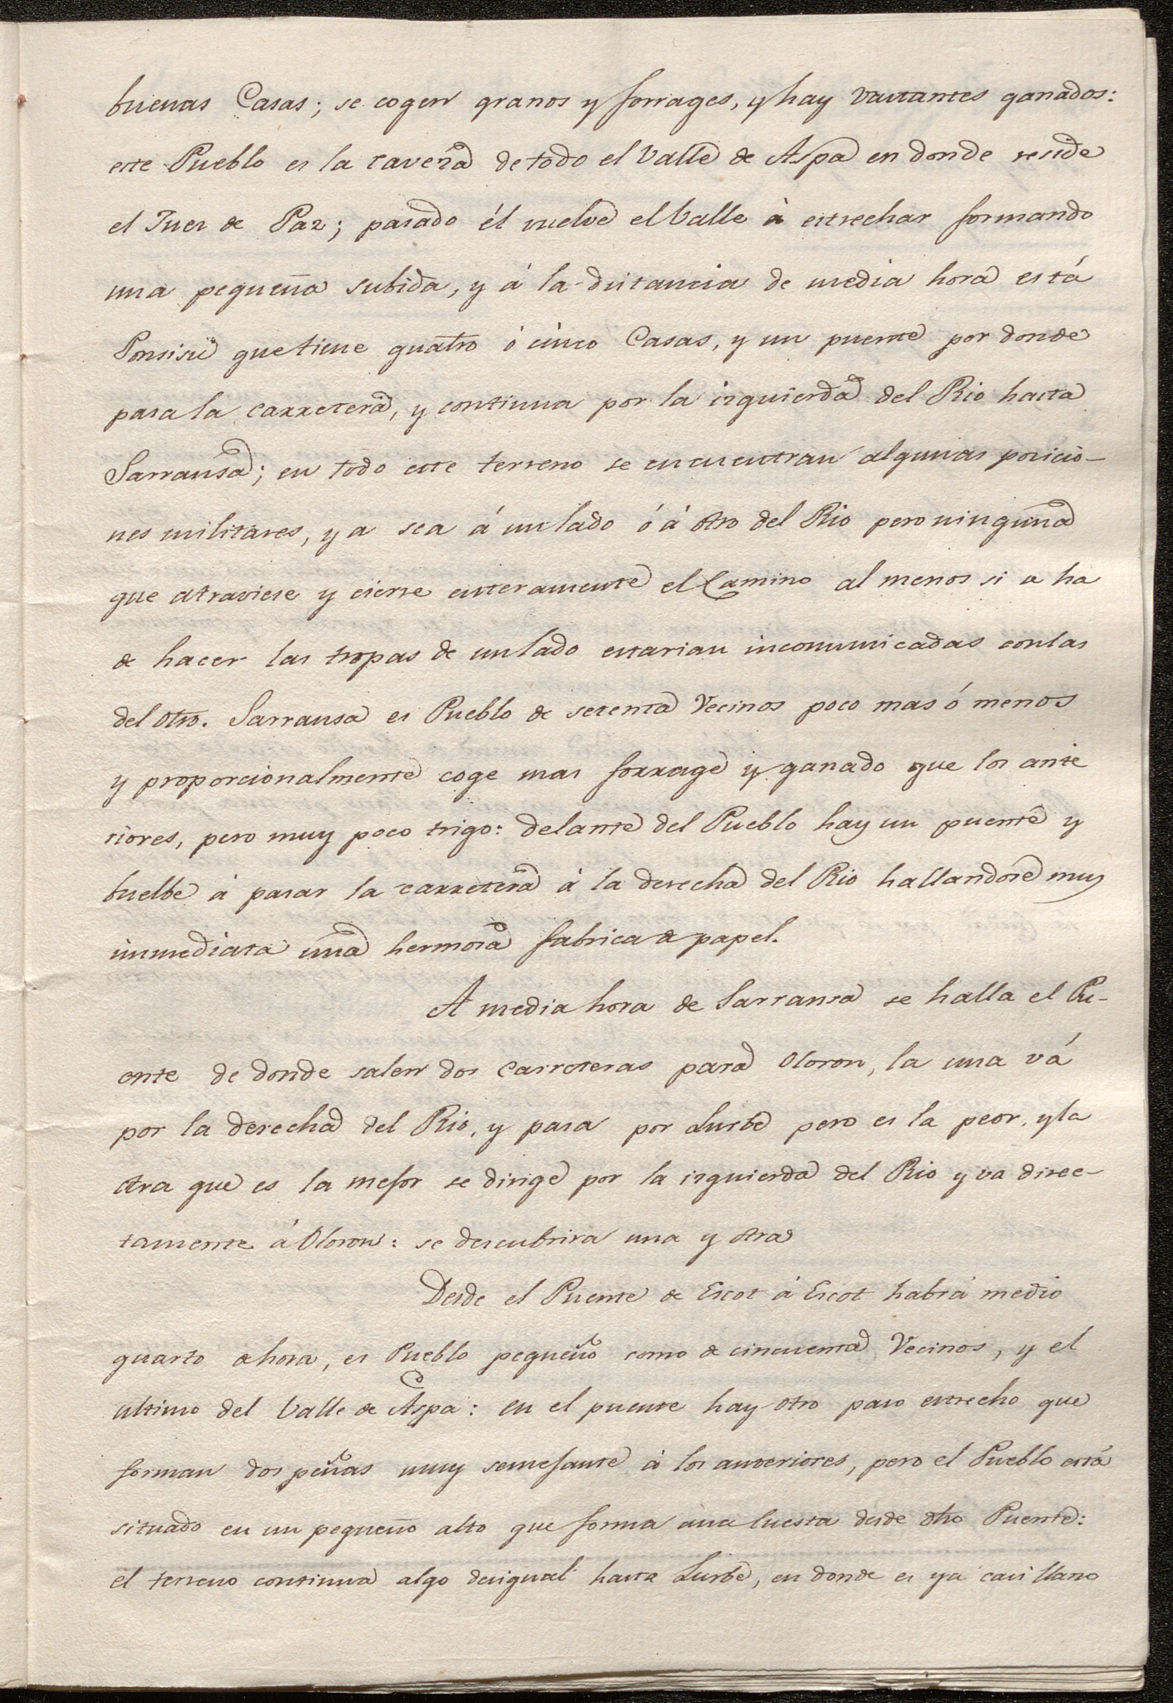 buenas Casas; se cogen granos y forrages, y hay vastantes ganados:
este Pueblo es la caveza de todo el Valle de Aspa en donde reside
el Juez de Paz; pasado él vuelve el Valle à estrechar formando
una pequeña subida, y á la distancia de media hora está
que tiene quatro ó cinco Casas, y un puente por donde
pasa la carretera, y continua por la izquierda del Rio hasta
Sarransa; en todo este terreno se encuentran algunas posicio-
nes militares, ya sea á un lado ó á otro del Rio pero ninguna
que atraviese y cierre enteramente el Camino al menos si a ha
de hacer las tropas de un lado estarian incomunicadas con las
del otro. Sarransa es Pueblo de setenta Vecinos poco mas ó menos
y proporcionalmente coge mas forrage y ganado que los ante
riores, pero muy poco trigo: delante del Pueblo hay un puente y
buelbe á pasar la carretera à la derecha del Rio hallandose muy
inmediata una hermosa fabrica de papel.
A media hora de Sarransa se halla el Pu-
ente de donde salen dos Carreteras para Oloron, la una vá
por la derecha del Rio, y pasa por Lurbe pero es la peor, y la
otra que es la mejor se dirige por la izquierda del Rio y va direc-
tamente á Oloron: se descubrira una y otra
Desde el Puente de Escot á Escot habrá medio
quarto de hora, es Pueblo pequeño como de cincuenta Vecinos, y el
ultimo del Valle de Aspa: en el puente hay otro paso estrecho que
forman dos peñas muy semejante à los anteriores, pero el Pueblo está
situado en un pequeño alto que forma una cuesta desde dho Puente:
el terreno continua algo desigual hasta Lurbe, en donde es ya casi llano